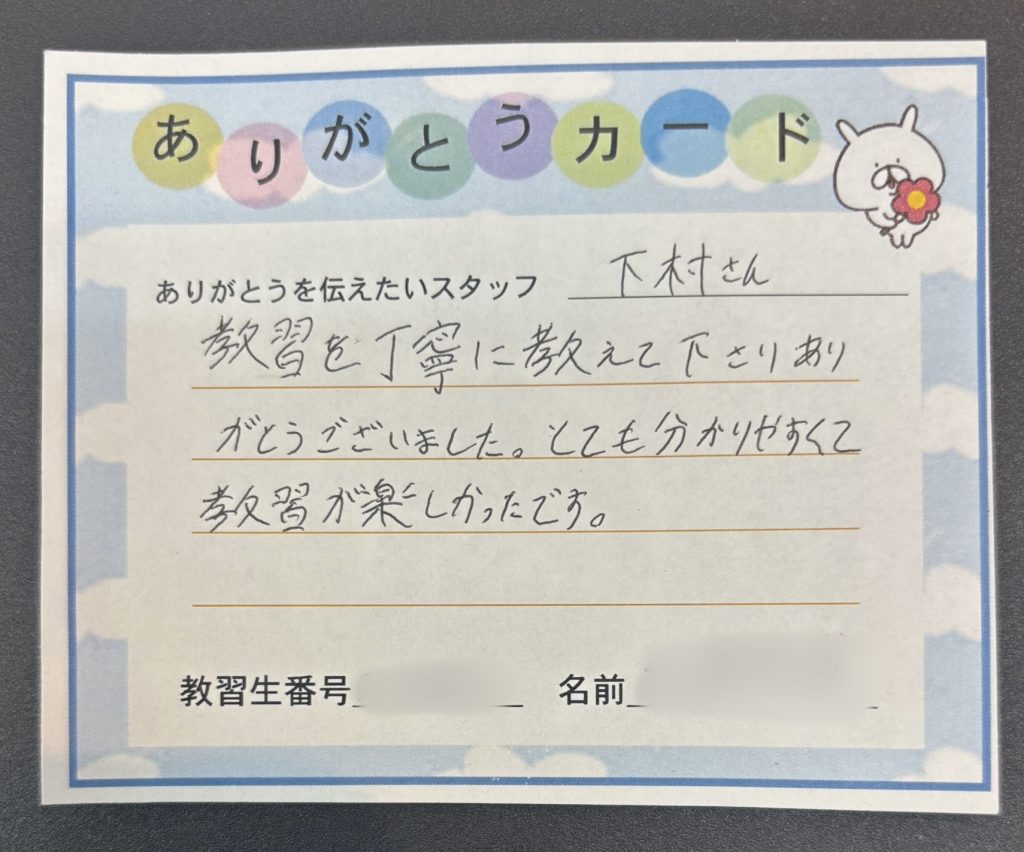 ありがとうカード
ありがとうを伝えたいスタッフ 下村さん
教習を丁寧に教えて下さりあり
がとうございました。とても分かりやすくて
教習が楽しかったです。
教習生番号 名前